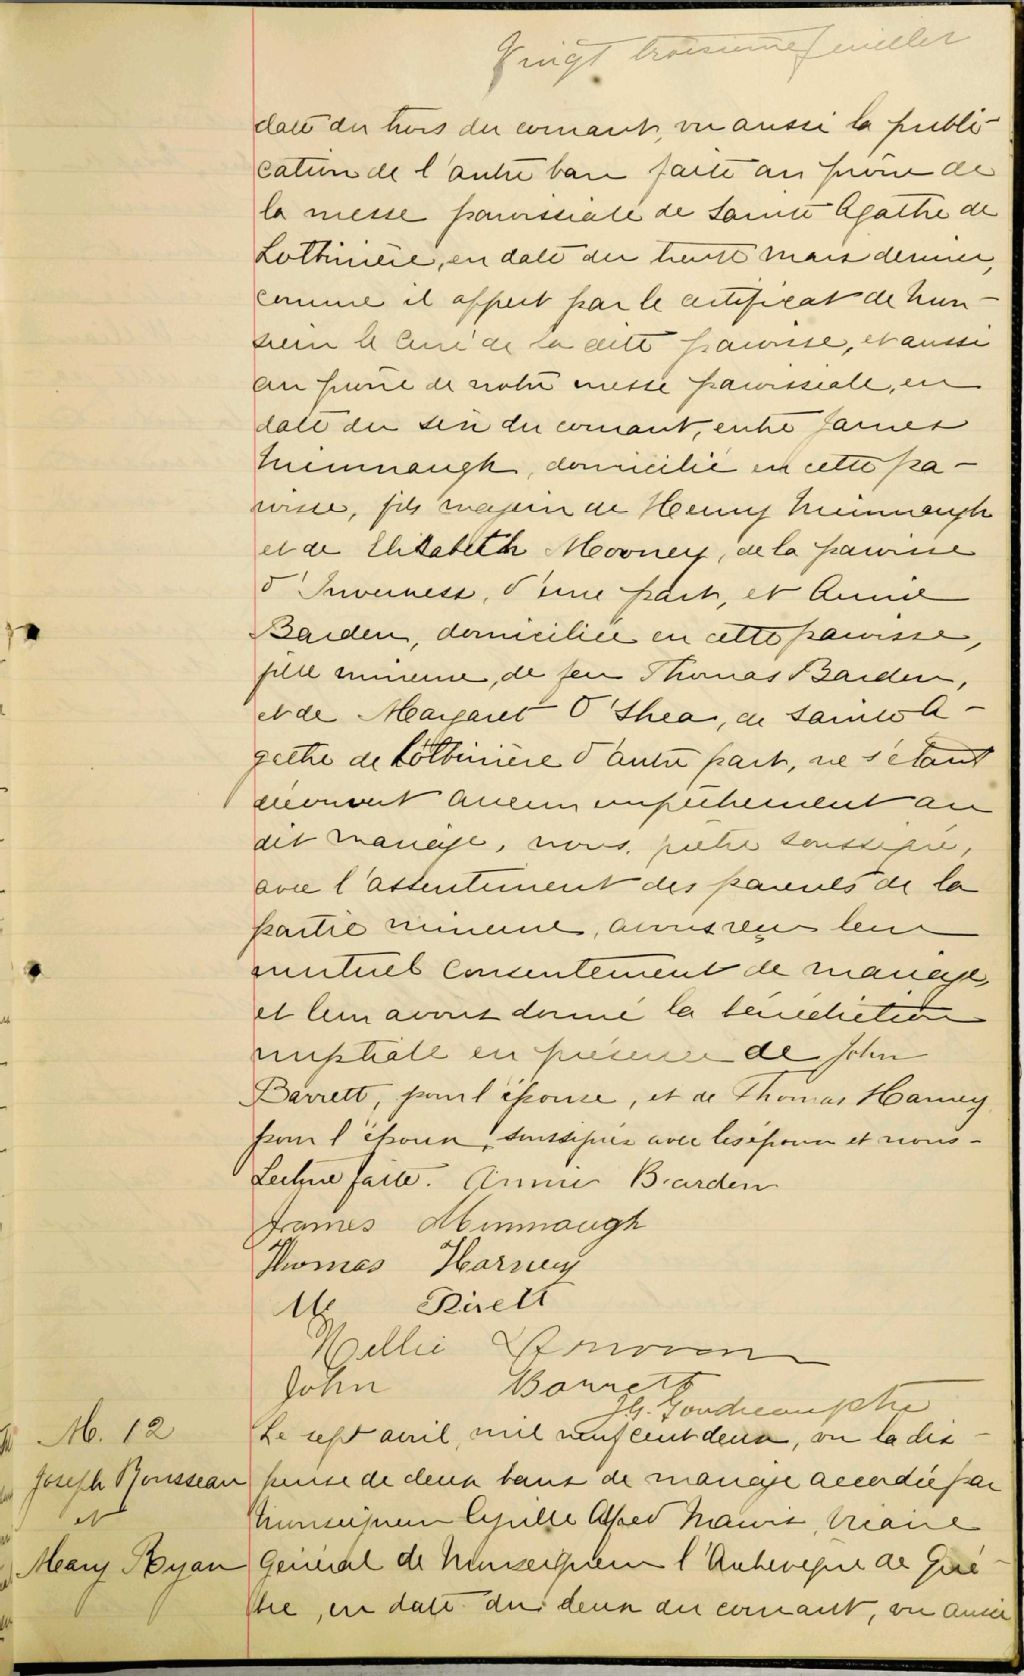 Vingt troisième feuillet
date du trois du courant, vu aussi la publi-
cation de l'autre ban faite au prône de
la messe paroissiale de Sainte Agathe de
Lotbinière, en date du trente mars dernier,
comme il appert par le certificat de Mon-
sieur le Curé de la dite paroisse, et aussi
au prône de notre messe paroissiale, en
date du six du courant, entre James
Mimnaugh, domicilié en cette pa-
roisse, fils majeur de Henry Mimnaugh
et de Elizabeth Mooney, de la paroisse
d'Inverness, d'une part, et Annie
Barden, domiciliée en cette paroisse,
fille mineure, de feu Thomas Barden,
et de Margaret O'Shea, de Sainte A-
gathe de Lotbinière d'autre part, ne s'étant
découvert aucun empêchement au
dit mariage, nous, prêtre soussigné,
avec l'assentiment des parents de la
partie mineure, avons reçu leur
mutuel consentement de mariage,
et leur avons donné la bénédiction
nuptiale en présence de John
Barrett, pour l'épouse, et de Thomas Harney
pour l'époux, soussignés avec les époux et nous-
Lecture faite. Annie Barden
James Mimnaugh
Thomas Harney
Nellie Donovan
John Barrett
J.G. Goudreau ptre
M. 12
Joseph Rousseau
et
Mary Ryan
Le sept avril, mil neuf cent deux, vu la dis-
pense de deux bans de mariage accordée par
Monseigneur Cyrille Alfred Marois, Vicaire
Général de Monseigneur l'Archevêque de Qué-
bec, en date du deux du courant, vu aussi